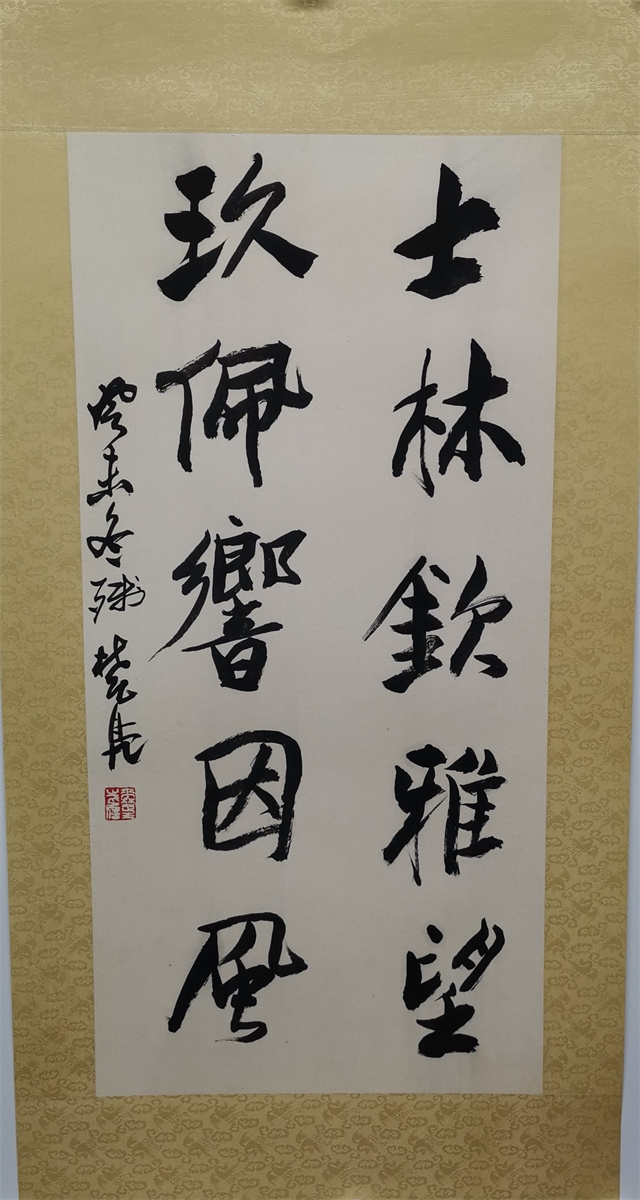 士林欽雅望
玖佩響因風
癸未冬殘楚庄